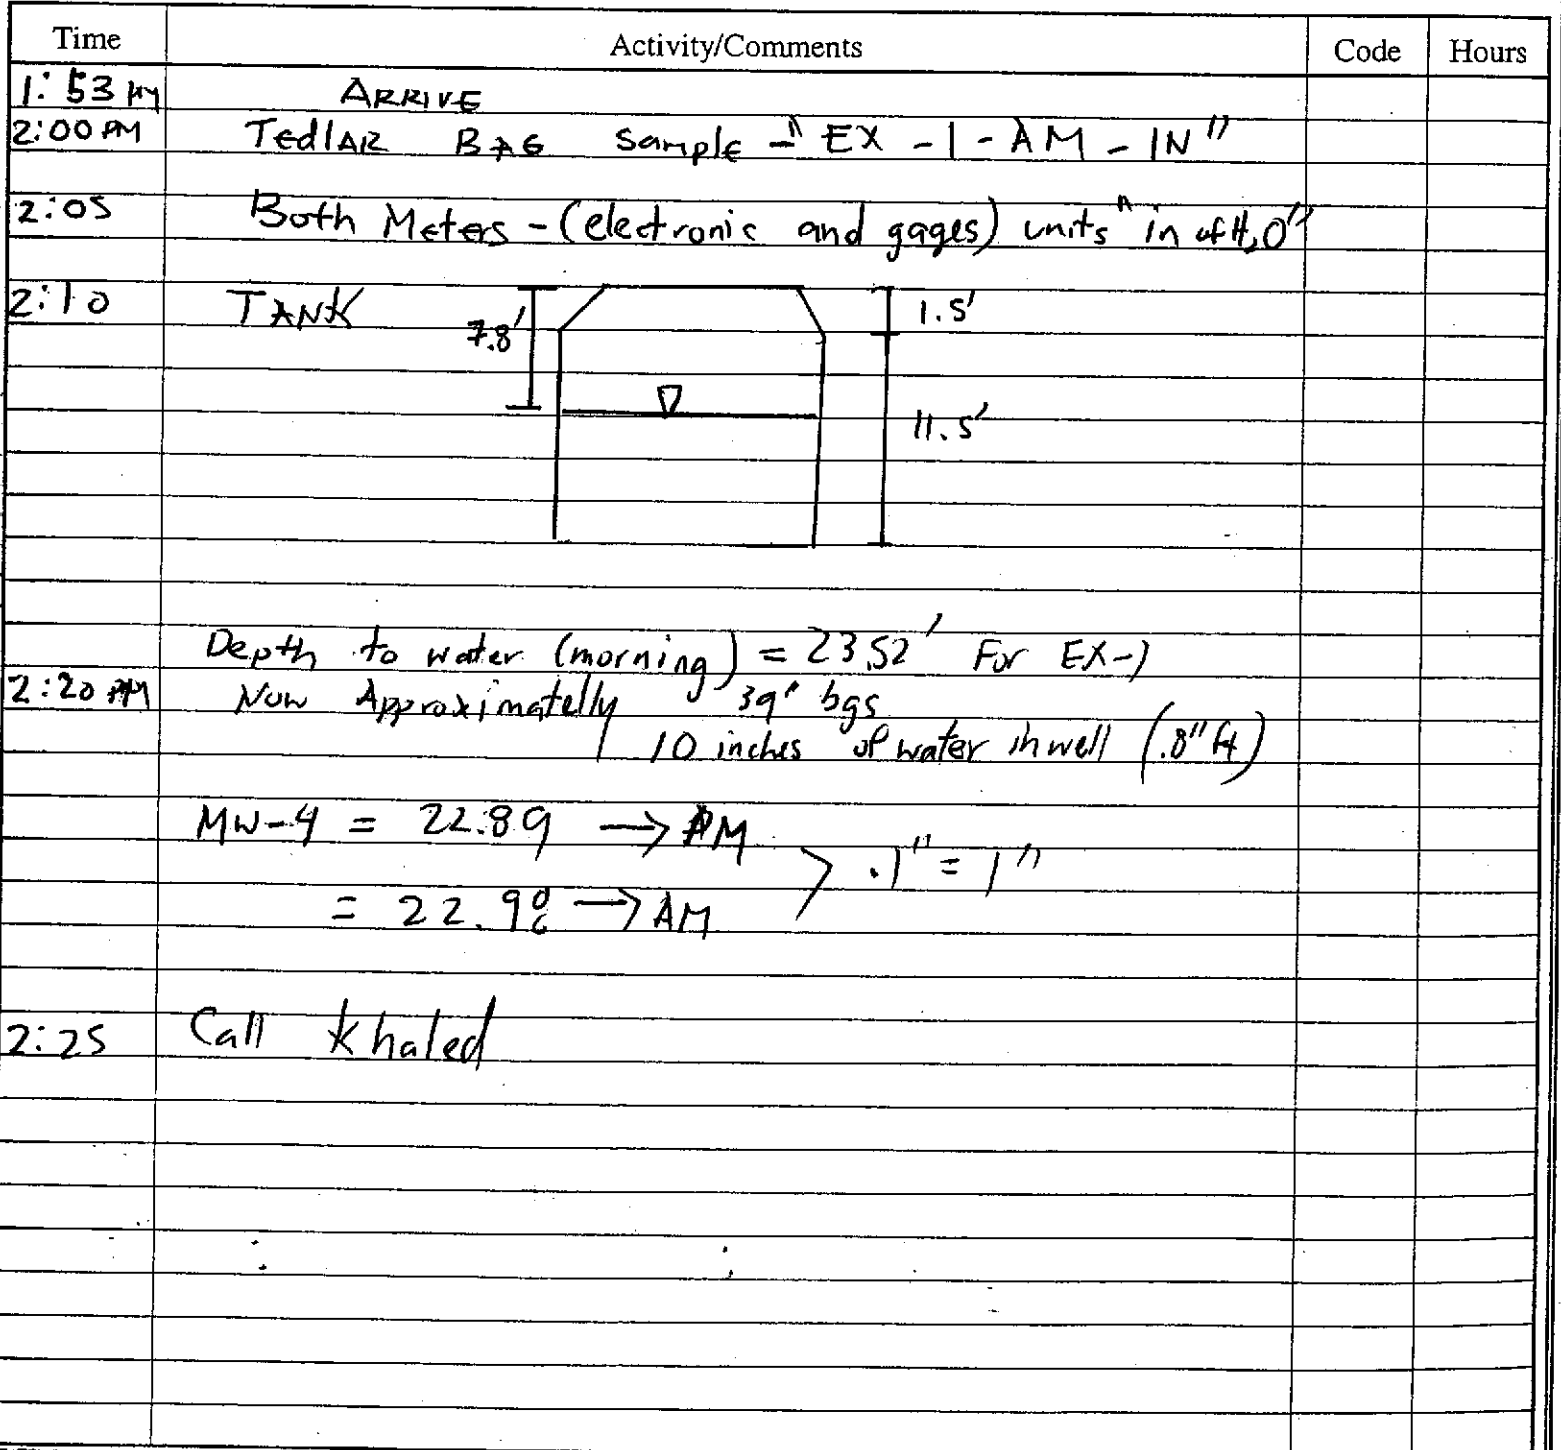 Time Activity/Comments Code Hours
1:53 PM ARRIVE
2:00 PM TedlAR BAG Sample - "EX-1-AM-IN"
2:05 Both Meters - (electronic and gages) units "in of H2O"
2:10 TANK 7.8' 1.5'
11.5'
Depth to water (morning) = 23.52' For EX-1
2:20 PM Now Approximatelly 39' bgs
10 inches of water in well (.8" ft)
MW-4 = 22.89 → PM
.1" = 1"
= 22.98 → AM
2:25 Call Khaled